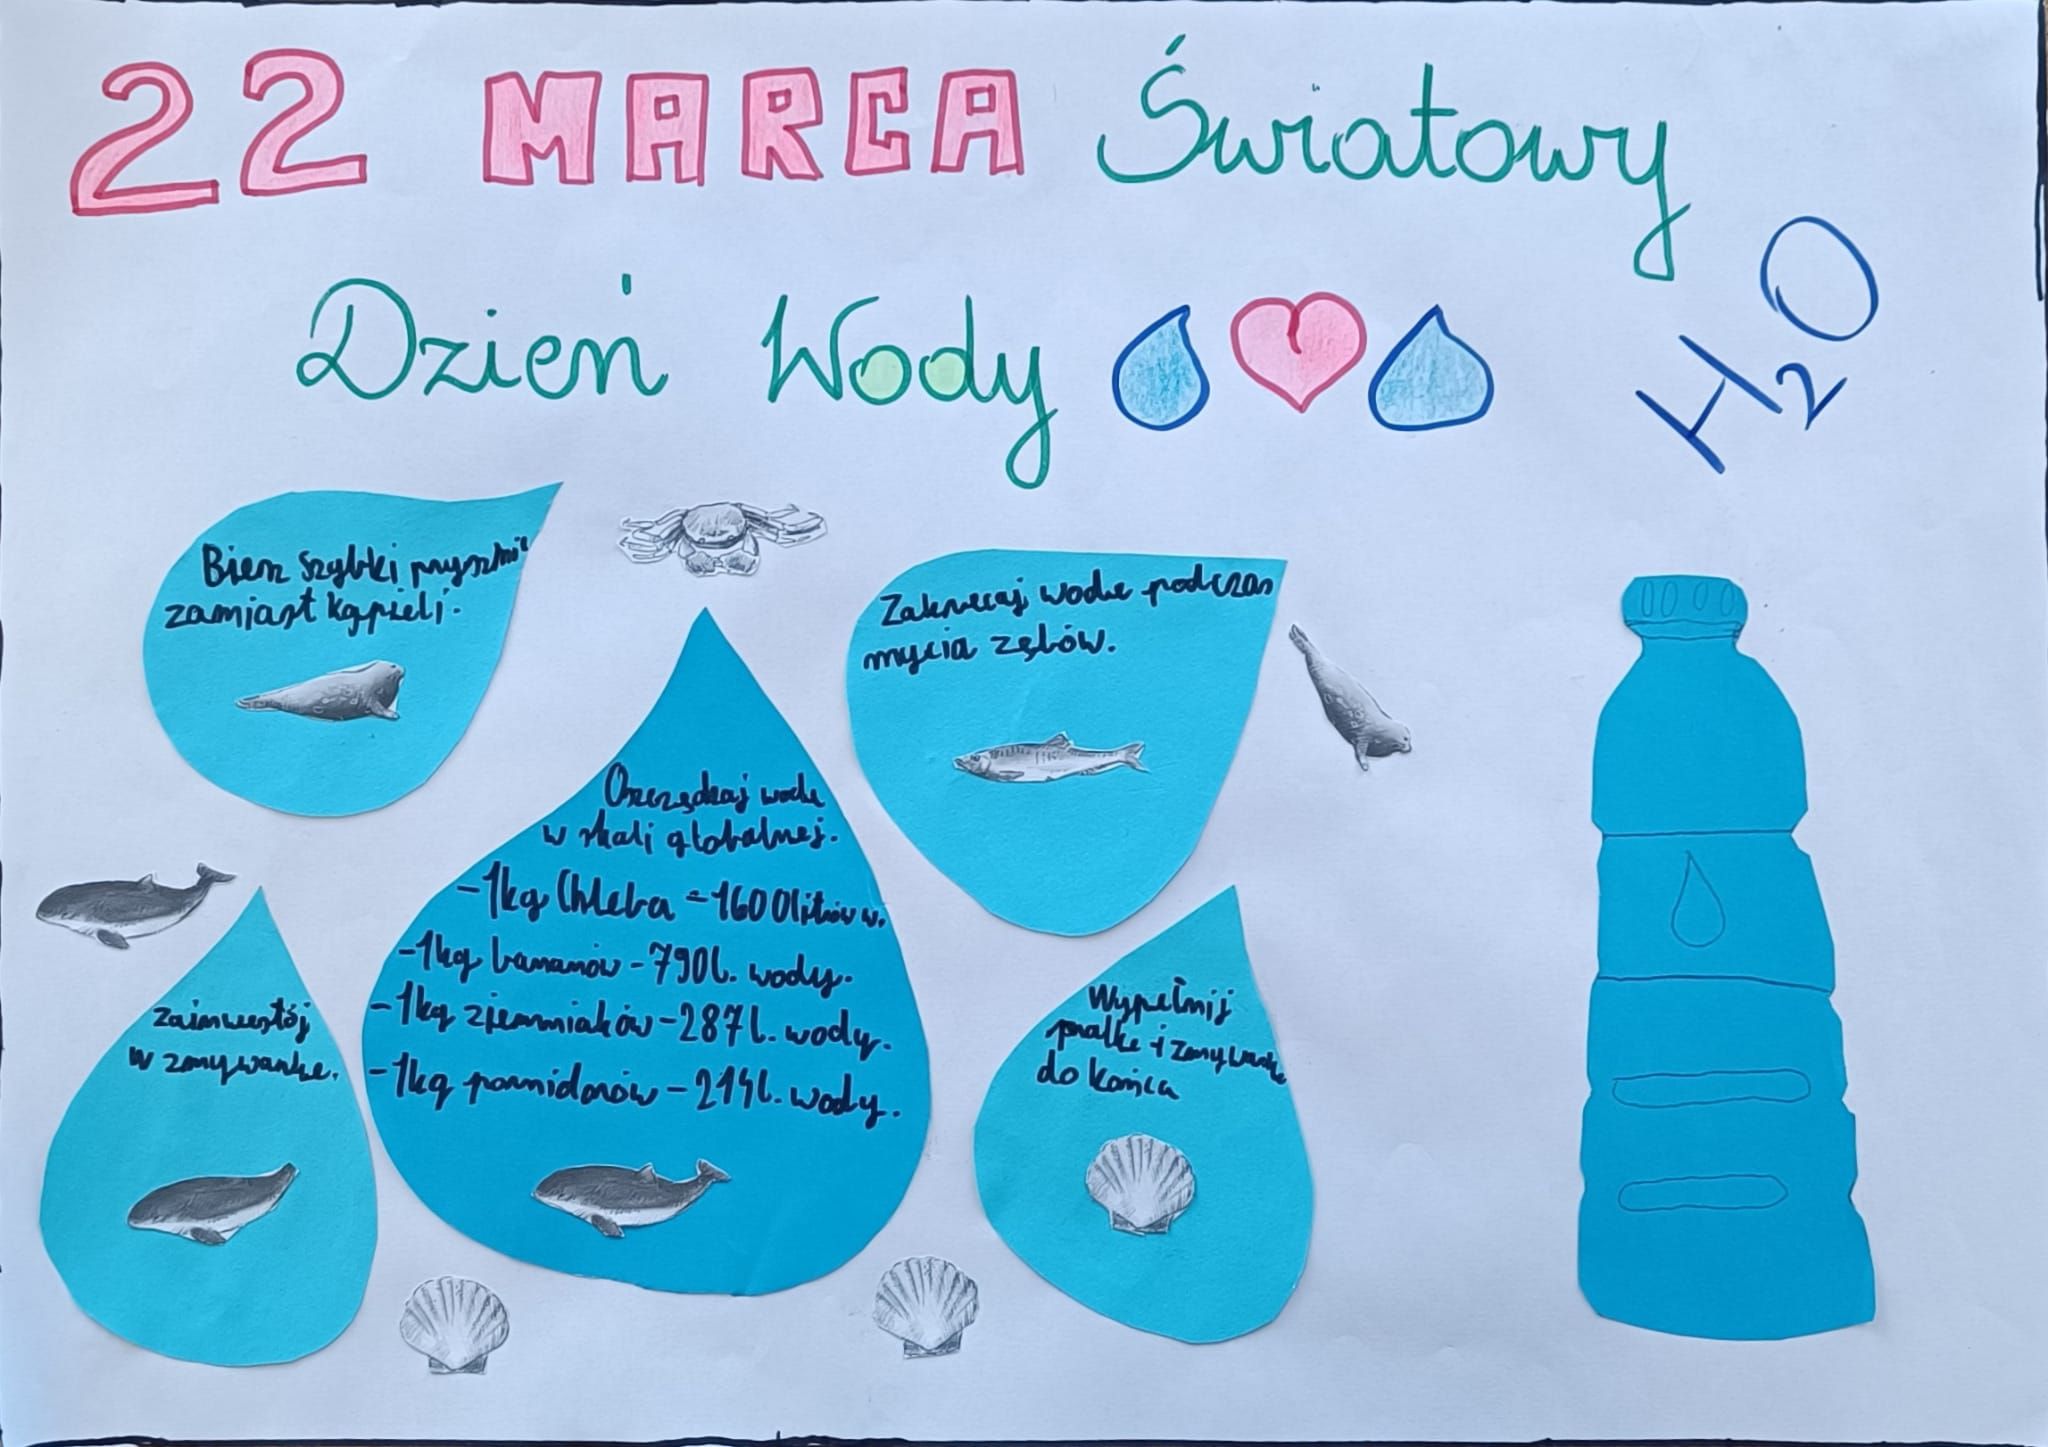 22 MARCA Światowy
Dzień Wody
H2O
Bierz szybki prysznic
zamiast kąpieli.
Zakręcaj wodę podczas
mycia zębów.
Oszczędzaj wodę
w skali globalnej.
-1kg Chleba = 1600litrów w.
-1kg bananów - 790l. wody.
-1kg ziemniaków - 287l. wody.
-1kg pomidorów - 214l. wody.
Zainwestój
w zmywarkę.
Wypełnij
pralkę i zmywarkę
do końca